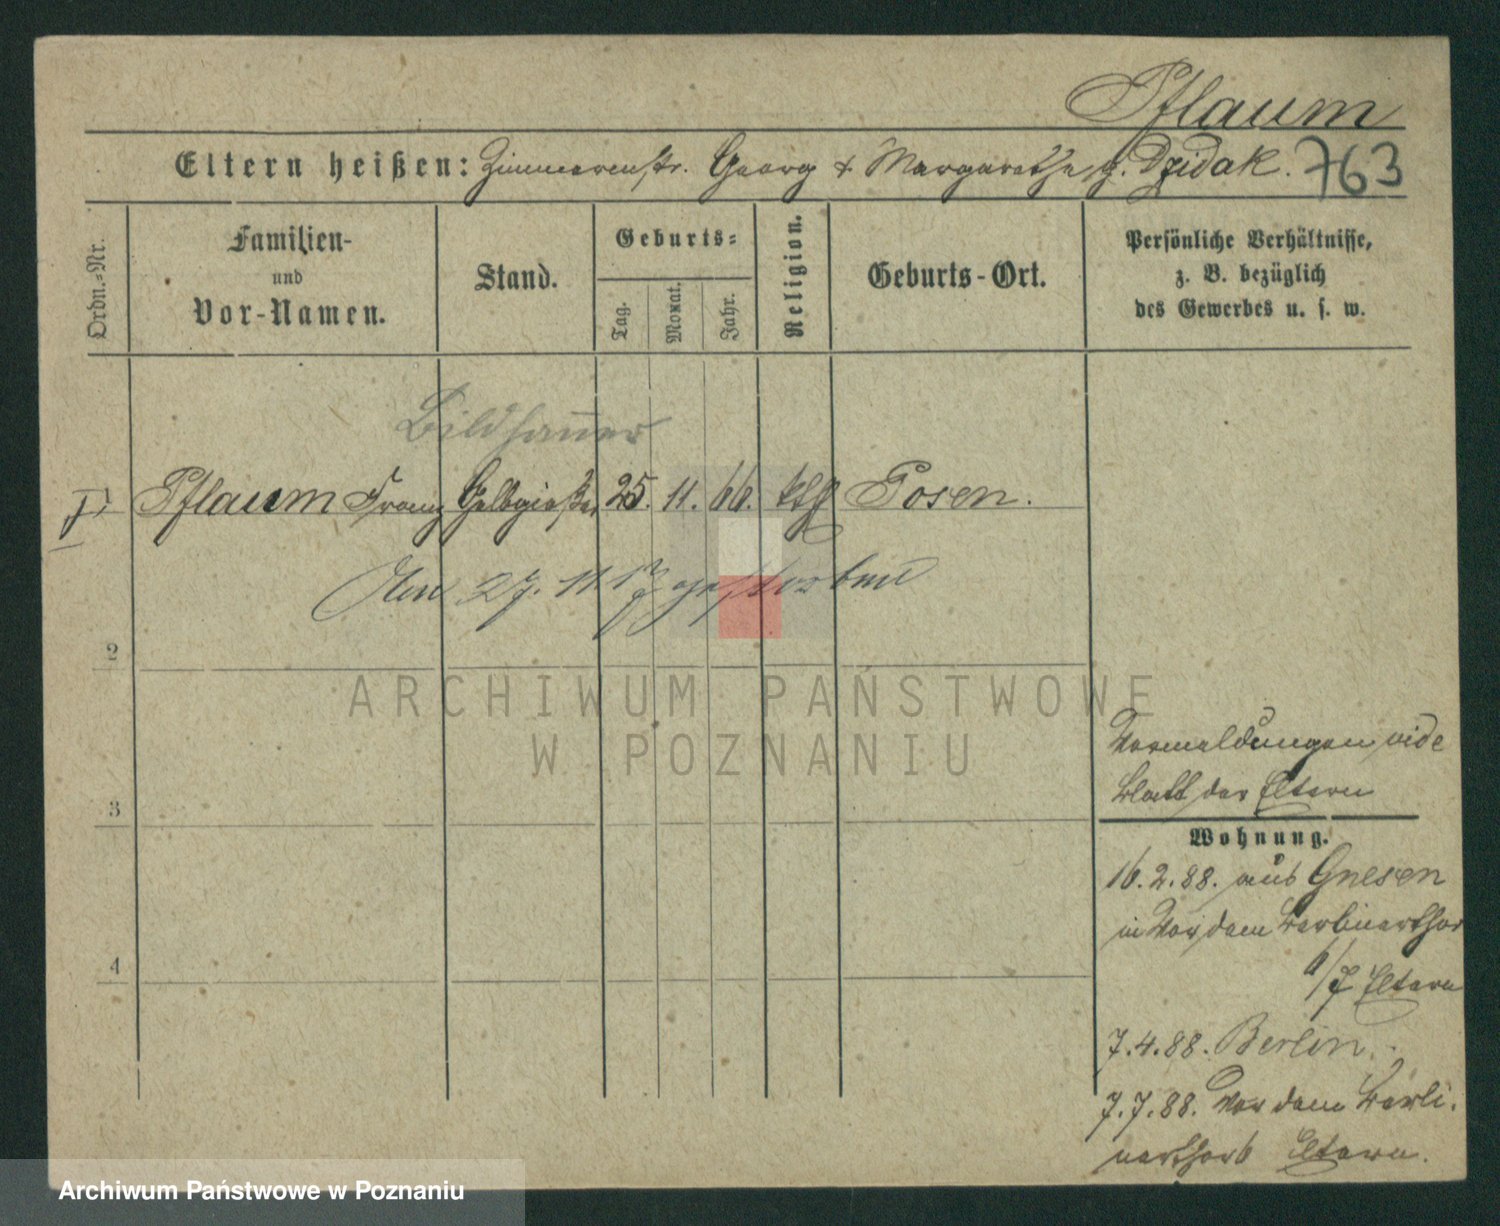 Pflaum
Eltern heißen: Zimmermstr. Georg & Margarethe g. Dzidak. 763
Ordn.-Nr.
Familien-
und
Vor-Namen.
Stand.
Geburts-
Tag.
Monat.
Jahr.
Religion.
Geburts-Ort.
Persönliche Verhältnisse,
z. B. bezüglich
des Gewerbes u. s. w.
Bildhauer
Pflaum Franz Gelbgießer 25. 11. 66. kth Posen.
Den 27. 11. 17 gestorben
2
3
4
Vermeldungen vide
Blatt der Eltern
Wohnung.
16.2.88. aus Gnesen
in Vor dem Berlinerthor
6/7 Eltern
7.4.88. Berlin.
7.7.88. Vor dem Berli-
nerthor 6 Eltern.
ARCHIWUM PAŃSTWOWE
W POZNANIU
Archiwum Państwowe w Poznaniu